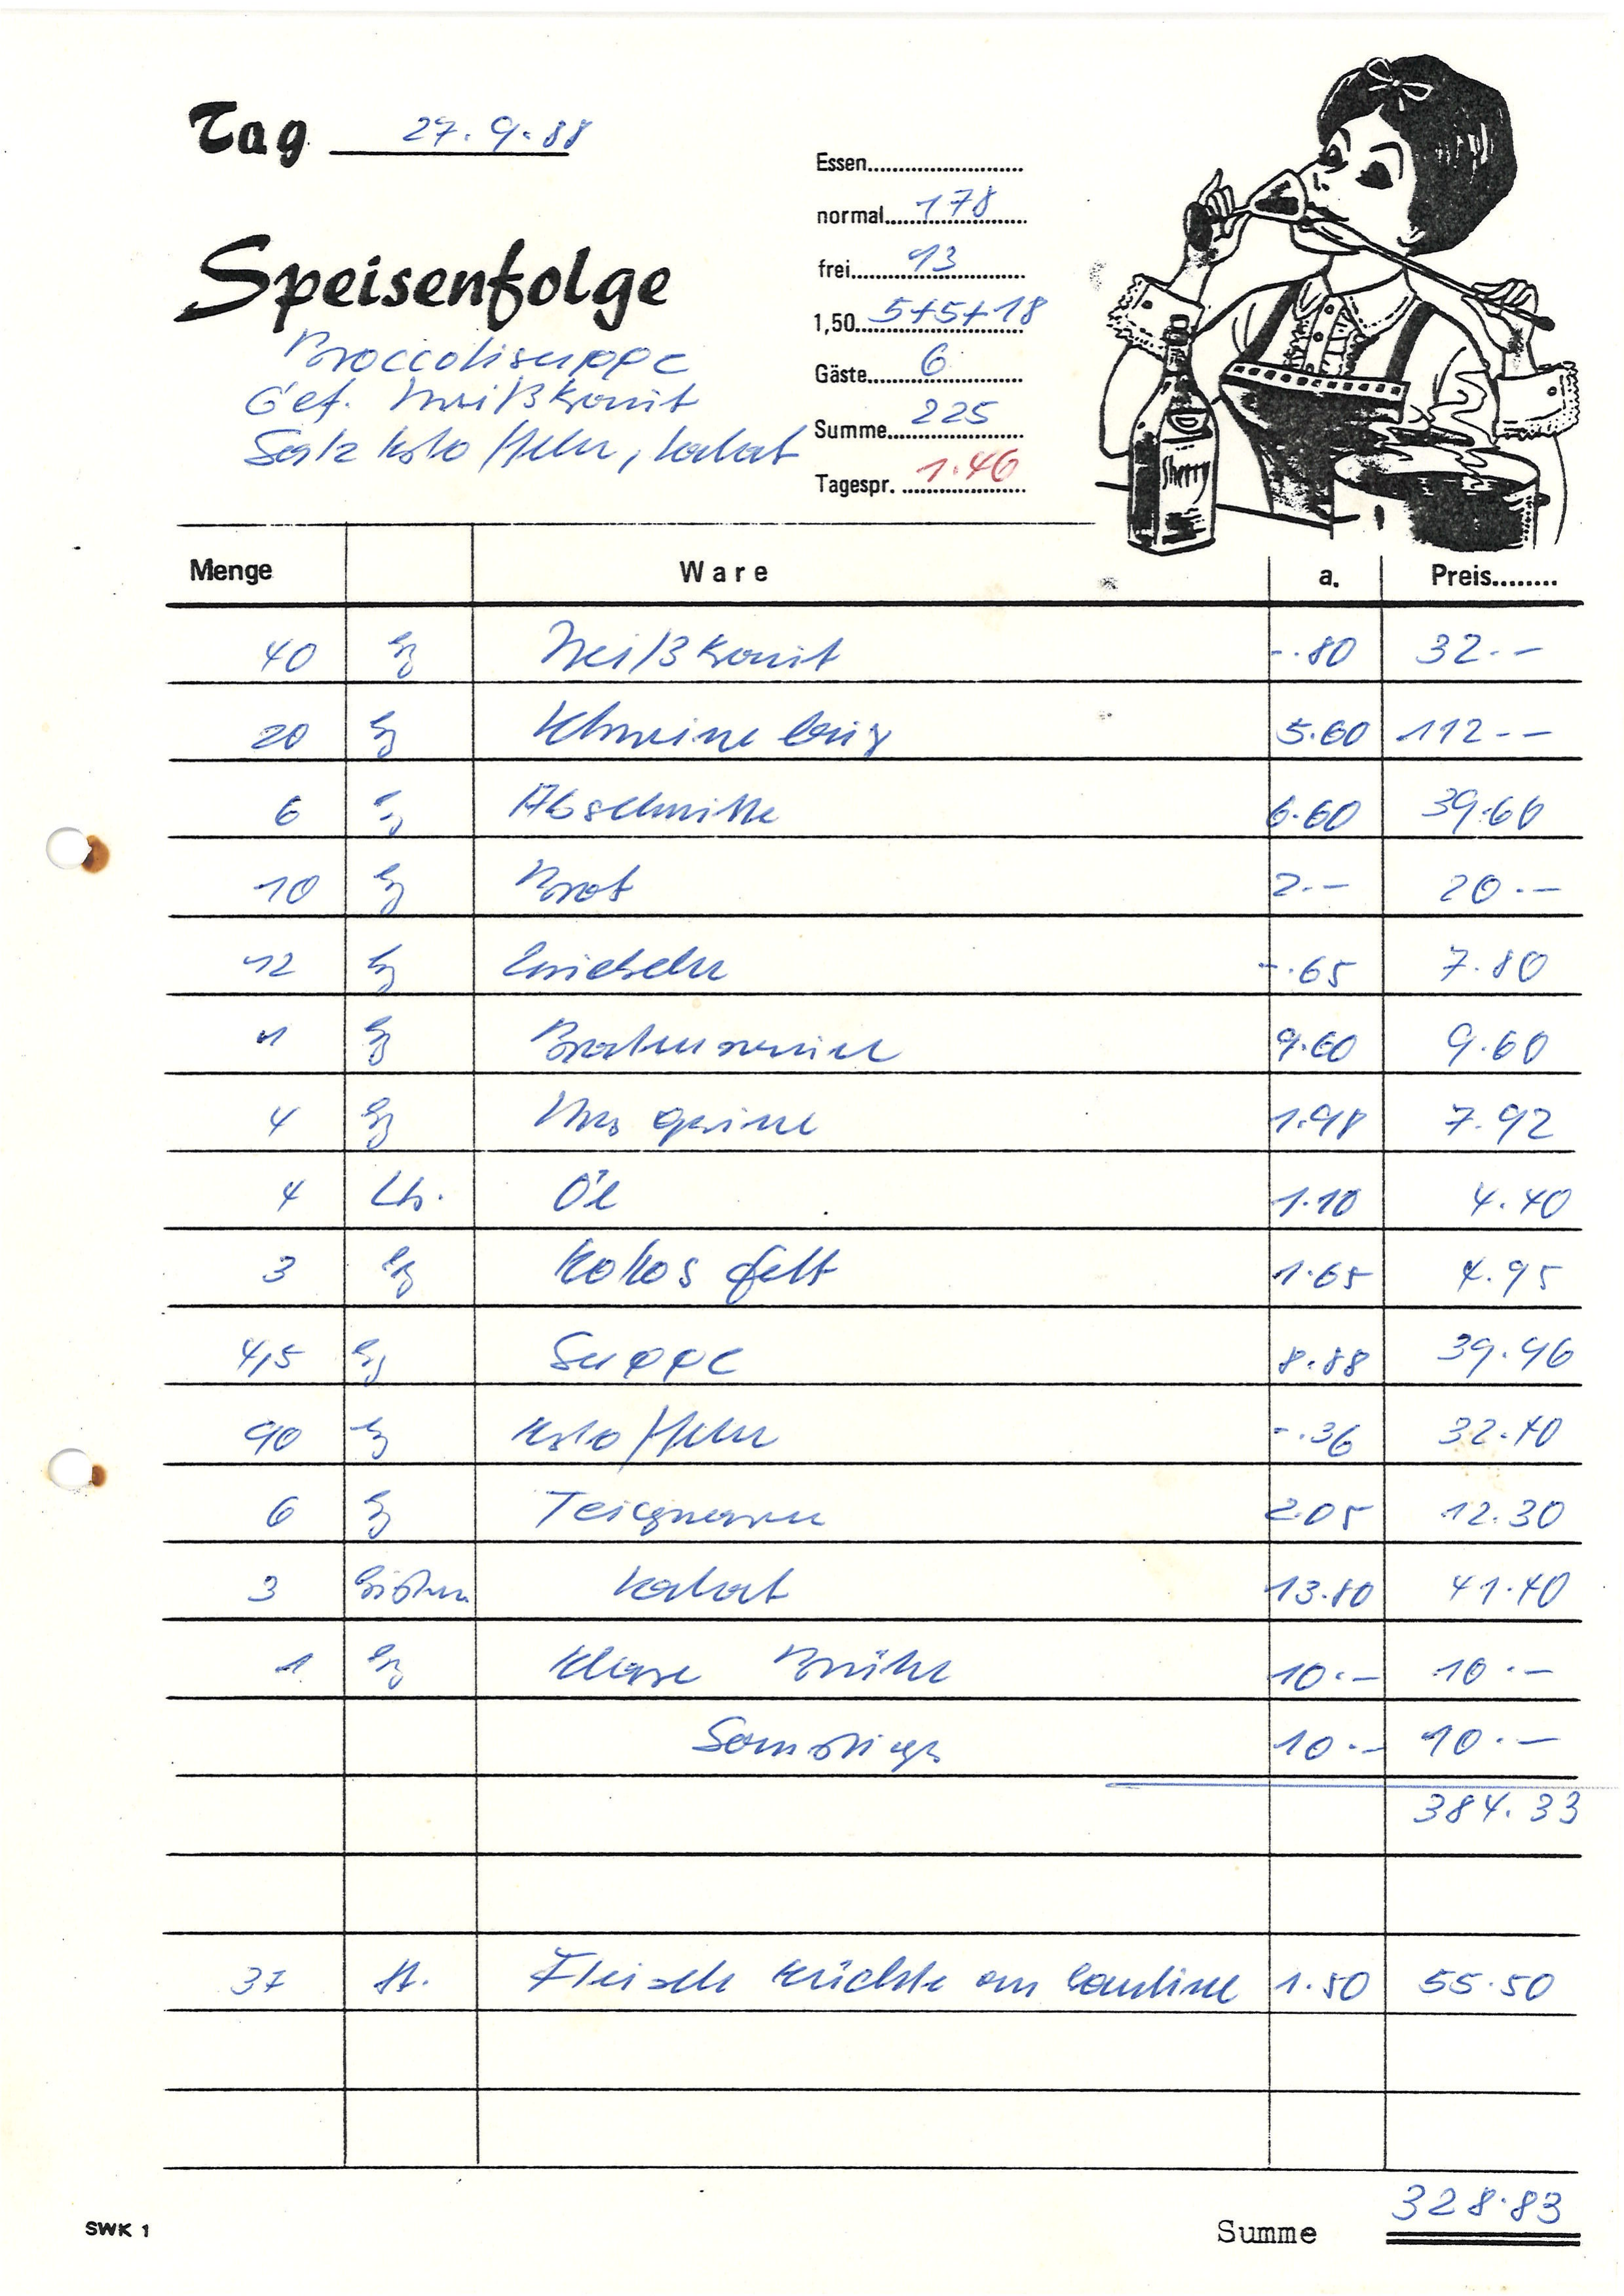 Tag 27.9.88
Speisenfolge
Broccolisuppe
Gef. Weißkraut
Salzkartoffeln, Salat
Essen
normal 178
frei 13
1,50 5+5+18
Gäste 6
Summe 225
Tagespr. 1.46
Sherry
Menge Ware a. Preis
40 kg Weißkraut -.80 32.--
20 kg Schweine 5.60 112--
6 kg Abschnitte 6.60 39.60
10 kg Brot 2.-- 20.--
12 kg Zwiebeln -.65 7.80
1 kg Bratensauce 9.60 9.60
4 kg Margarine 1.98 7.92
4 Ltr. Öl 1.10 4.40
3 kg Kokosfett 1.65 4.95
4,5 kg Suppe 8.88 39.96
90 kg Kartoffeln -.36 32.40
6 kg Teigwaren 2.05 12.30
3 Kisten Salat 13.80 41.40
1 kg Klare Brühe 10.-- 10.--
Sonstiges 10.-- 10.--
384.33
37 St. Fleischküchle an Cantine 1.50 55.50
SWK 1
Summe 328.83